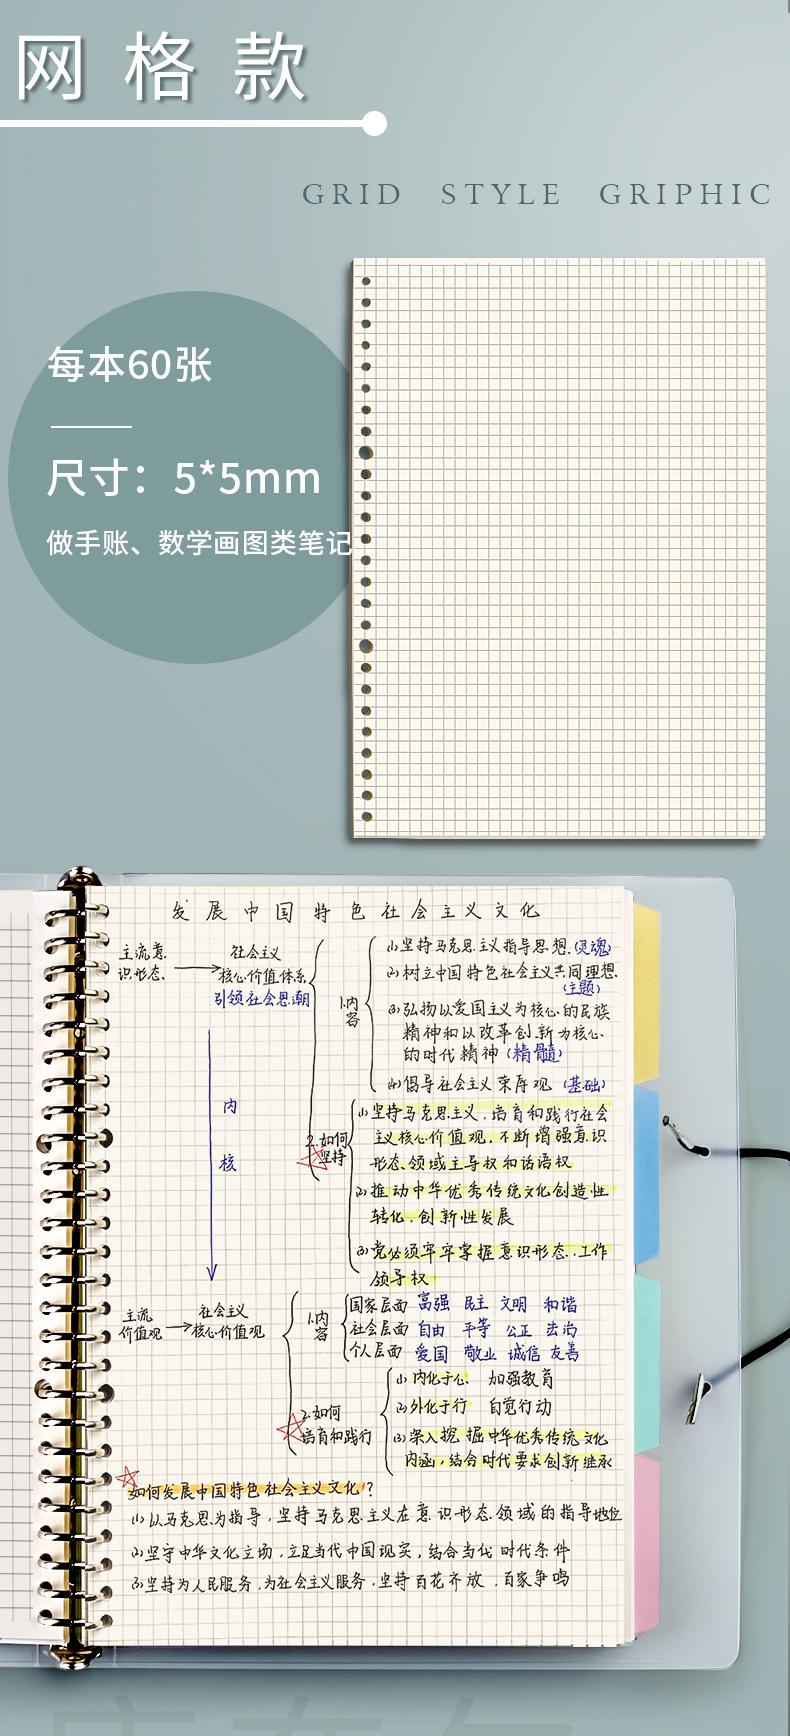 网格款
GRID STYLE GRIPHIC
每本60张
尺寸：5*5mm
做手账、数学画图类笔记
发展中国特色社会主义文化
主流意
识形态
社会主义
核心价值体系
引领社会思潮
1.内
容
(1)坚持马克思主义指导思想.(灵魂)
(2)树立中国特色社会主义共同理想.
(主题)
(3)弘扬以爱国主义为核心的民族
精神和以改革创新为核心
的时代精神(精髓)
(4)倡导社会主义荣辱观 (基础)
内
核
2.如何
坚持
(1)坚持马克思主义.培育和践行社会
主义核心价值观,不断增强意识
形态领域主导权和话语权
(2)推动中华优秀传统文化创造性
转化,创新性发展
(3)党必须牢牢掌握意识形态工作
领导权
主流
价值观
社会主义
核心价值观
1.内
容
国家层面 富强 民主 文明 和谐
社会层面 自由 平等 公正 法治
个人层面 爱国 敬业 诚信 友善
2.如何
培育和践行
(1)内化于心 加强教育
(2)外化于行 自觉行动
(3)深入挖掘中华优秀传统文化
内涵,结合时代要求创新继承
如何发展中国特色社会主义文化?
(1)以马克思为指导,坚持马克思主义在意识形态领域的指导地位
(2)坚守中华文化立场,立足当代中国现实,结合当代时代条件
(3)坚持为人民服务,为社会主义服务.坚持百花齐放,百家争鸣